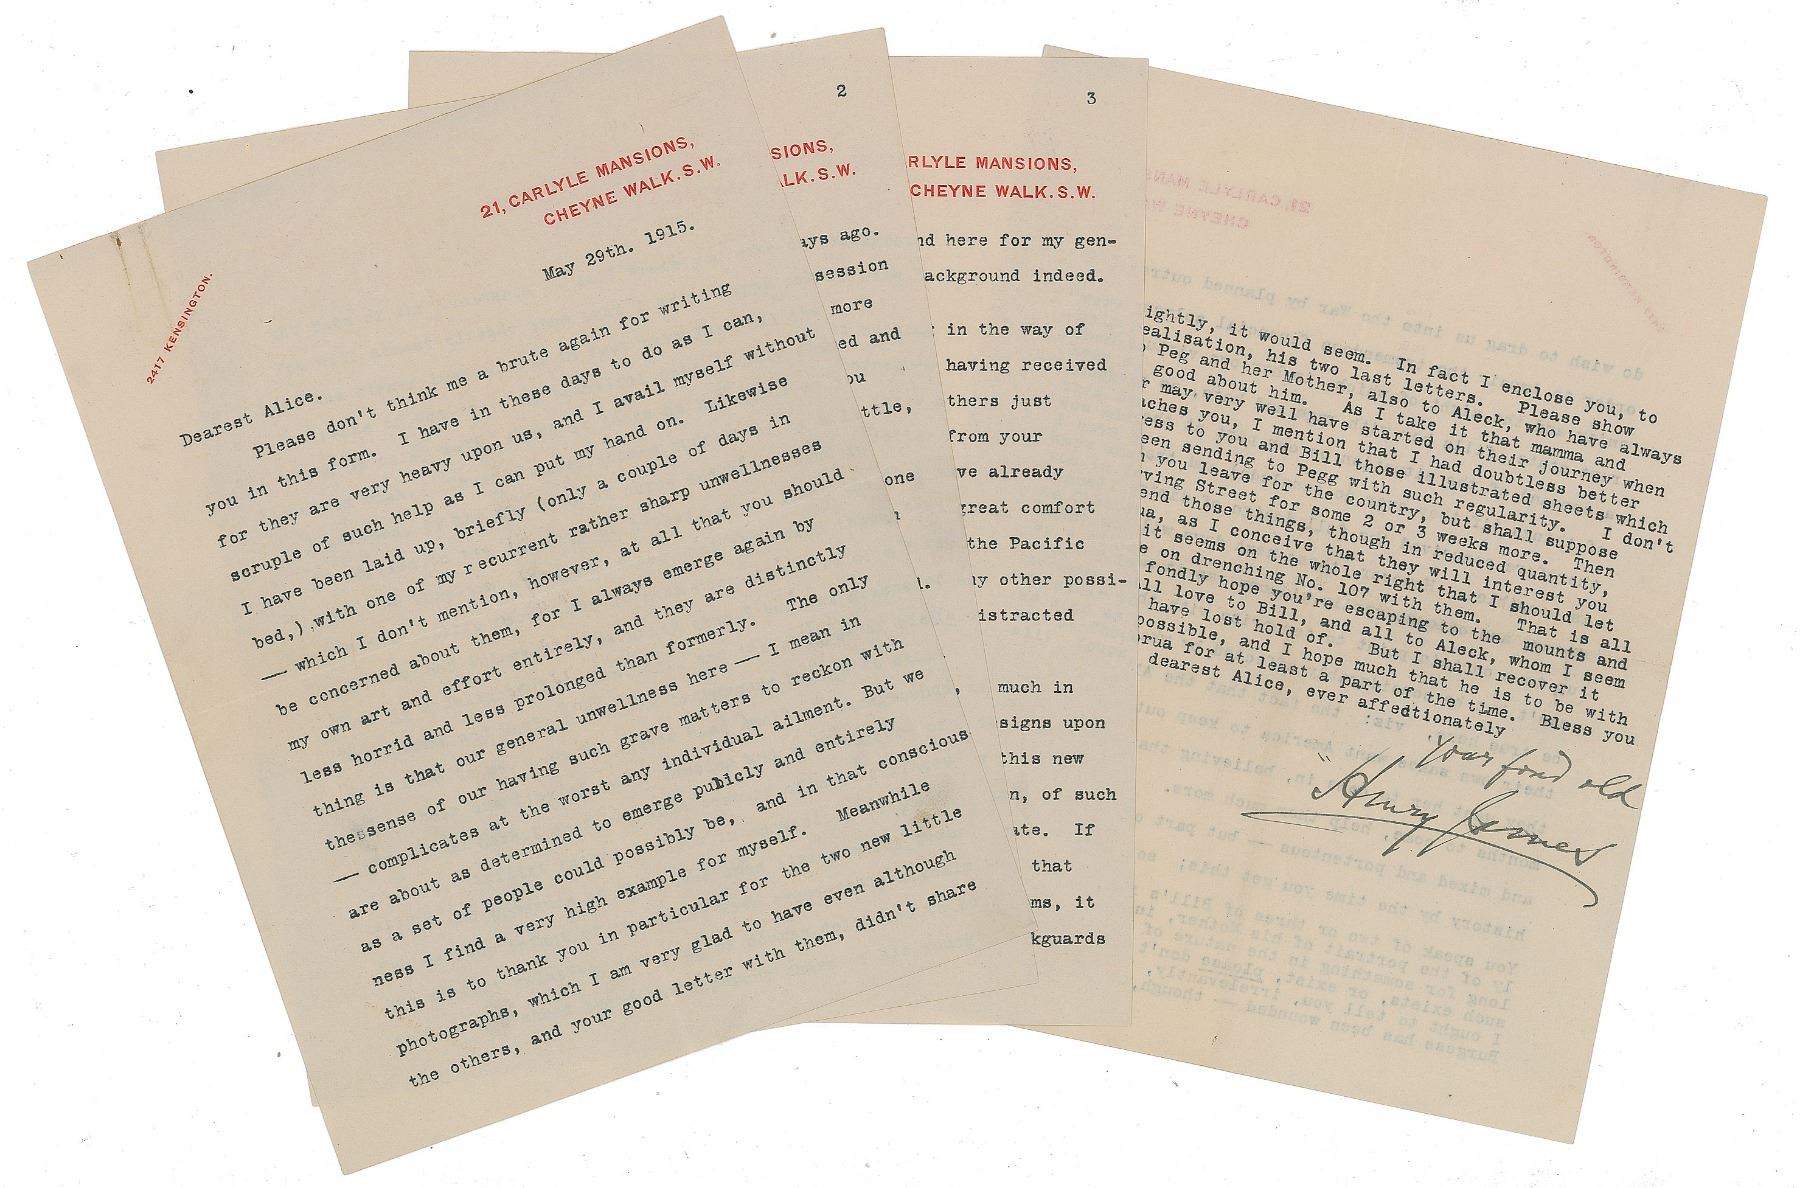 21, CARLYLE MANSIONS,
CHEYNE WALK. S.W.
2417 KENSINGTON.
May 29th. 1915.
Dearest Alice.
Please don't think me a brute again for writing
you in this form. I have in these days to do as I can,
for they are very heavy upon us, and I avail myself without
scruple of such help as I can put my hand on. Likewise
I have been laid up, briefly (only a couple of days in
bed,) with one of my recurrent rather sharp unwellnesses
— which I don't mention, however, at all that you should
be concerned about them, for I always emerge again by
my own art and effort entirely, and they are distinctly
less horrid and less prolonged than formerly. The only
thing is that our general unwellness here — I mean in
thessense of our having such grave matters to reckon with
— complicates at the worst any individual ailment. But we
are about as determined to emerge publicly and entirely
as a set of people could possibly be, and in that conscious
ness I find a very high example for myself. Meanwhile
this is to thank you in particular for the two new little
photographs, which I am very glad to have even although
the others, and your good letter with them, didn't share
2
SIONS,
LK. S.W.
ays ago.
session
more
ed and
ou
ttle,
one
3
RLYLE MANSIONS,
CHEYNE WALK. S.W.
nd here for my gen-
ackground indeed.
in the way of
having received
thers just
from your
ve already
great comfort
the Pacific
ny other possi-
istracted
much in
signs upon
this new
n, of such
ate. If
that
ms, it
kguards
ightly, it would seem. In fact I enclose you, to
ealisation, his two last letters. Please show
Peg and her Mother, also to Aleck, who have always
good about him. As I take it that mamma and
r may very well have started on their journey when
aches you, I mention that I had doubtless better
ress to you and Bill those illustrated sheets which
een sending to Pegg with such regularity. I don't
n you leave for the country, but shall suppose
rving Street for some 2 or 3 weeks more. Then
end those things, though in reduced quantity,
ua, as I conceive that they will interest you
it seems on the whole right that I should let
e on drenching No. 107 with them. That is all
fondly hope you're escaping to the mounts and
all love to Bill, and all to Aleck, whom I seem
have lost hold of. But I shall recover it
possible, and I hope much that he is to be with
orua for at least a part of the time. Bless you
dearest Alice, ever affedtionately
:
your fond old
Henry James